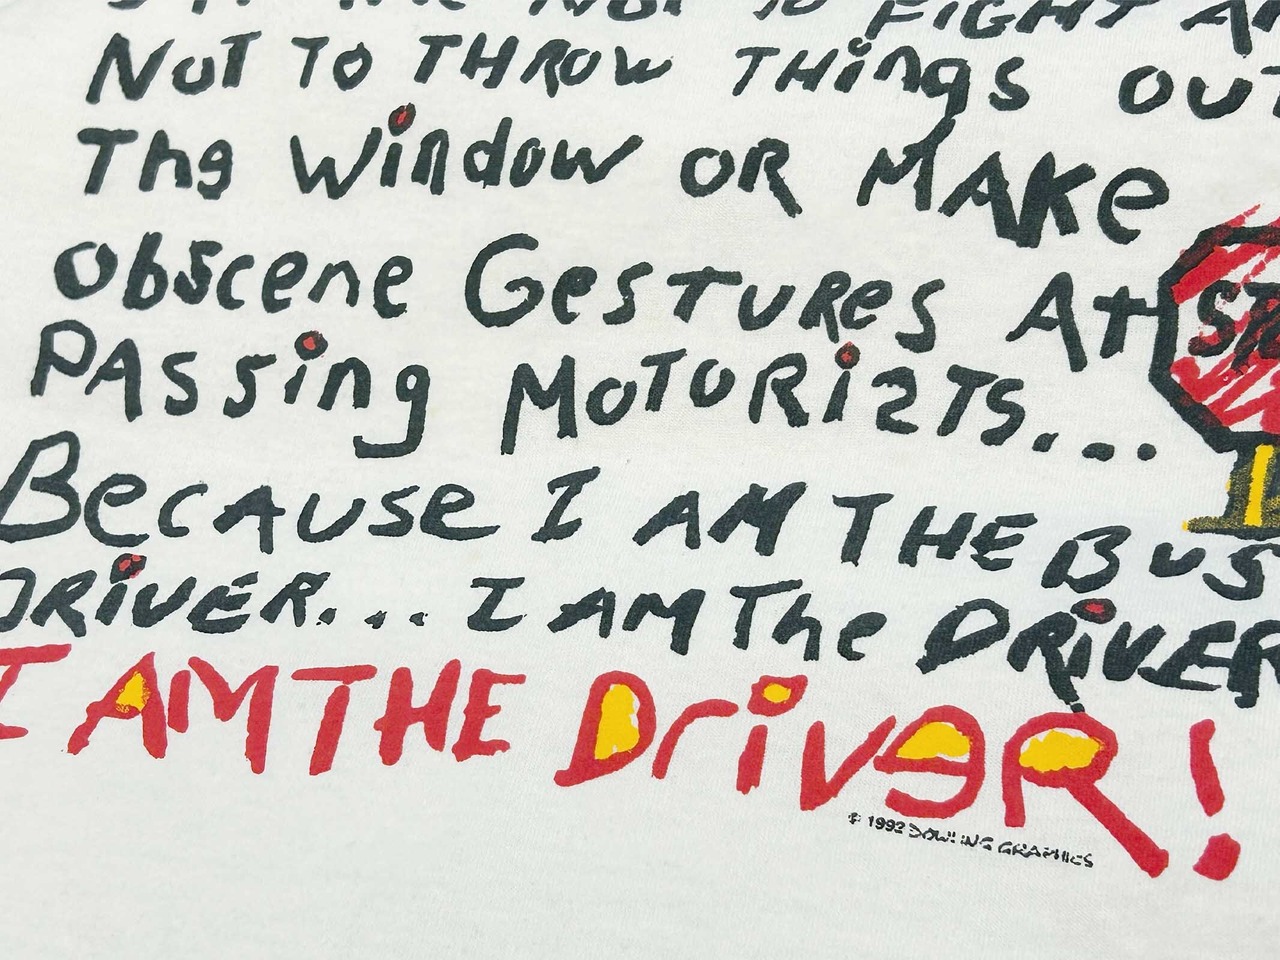 NOT TO FIGHT
NOT TO THROW THings OUT
The Window OR MAKe
Obscene GesTUReS At
PAssing MoToRisTs...
BecAuse I AM THE BUS
DRiVER... I AM The DRiVER
I AM THE DrivеR!
STO
© 1992 DOWLING GRAPHICS